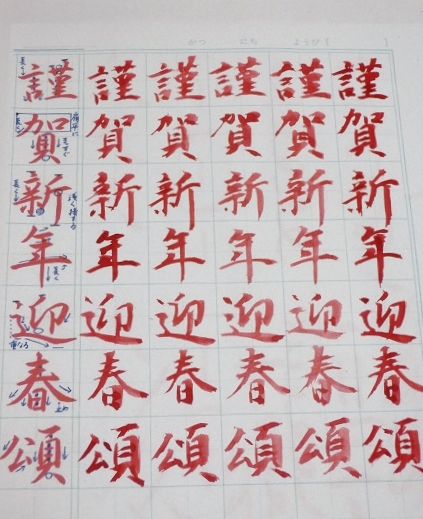 がつ にち ようび( )
謹 謹 謹 謹 謹 謹
賀 賀 賀 賀 賀 賀
新 新 新 新 新 新
年 年 年 年 年 年
迎 迎 迎 迎 迎 迎
春 春 春 春 春 春
頌 頌 頌 頌 頌 頌